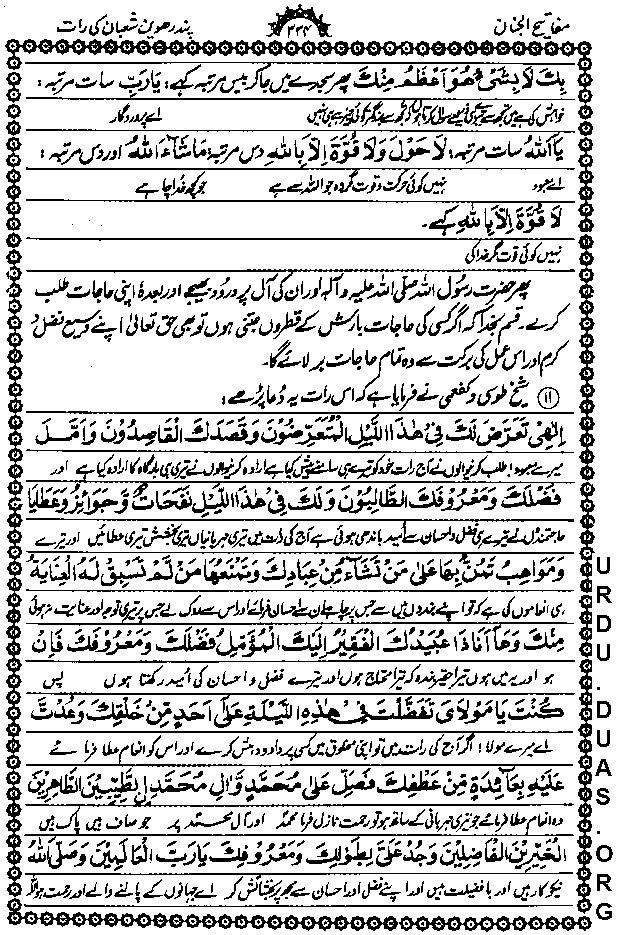 مفاتیح الجنان ۴۲۴ پندرھویں شعبان کی رات
بِكَ لَا بِشَیْءٍ هُوَ اَعْظَمُ مِنْكَ پھر سجدے میں جا کر بیس مرتبہ کہے: یَارَبِّ سات مرتبہ:
اے پروردگار
یَا اَللهُ سات مرتبہ: لَا حَوْلَ وَلَا قُوَّةَ اِلَّا بِاللهِ دس مرتبہ: مَاشَآءَ اللهُ اور دس مرتبہ:
اے معبود نہیں کوئی حرکت و قوت مگر وہ جو اللہ سے ہے جو کچھ خدا چاہے
لَا قُوَّةَ اِلَّا بِاللهِ کہے۔
نہیں کوئی قوت مگر خدا کی
پھر حضرت رسول اللہ صلی اللہ علیہ و آلہ اور ان کی آل پر درود بھیجے اور بعدہٗ اپنی حاجات طلب
کرے۔ قسم بخدا کہ اگر کسی کی حاجات بارش کے قطروں جتنی ہوں تو بھی حق تعالیٰ اپنے وسیع فضل و
کرم اور اس عمل کی برکت سے وہ تمام حاجات بر لائے گا۔
(۱۱) شیخ طوسی و کفعمی نے فرمایا ہے کہ اس رات یہ دُعا پڑھے:
اِلٰهِیْ تَعَرَّضَ لَكَ فِیْ هٰذَا اللَّیْلِ الْمُتَعَرِّضُوْنَ وَقَصَدَكَ الْقَاصِدُوْنَ وَاَمَّلَ
میرے معبود! طلب کرنیوالوں نے آج رات خود کو تیرے ہی سامنے پیش کیا ہے ارادہ کرنیوالوں نے تیری ہی بارگاہ کا ارادہ کیا ہے اور
فَضْلَكَ وَمَعْرُوْفَكَ الطَّالِبُوْنَ وَلَكَ فِیْ هٰذَا اللَّیْلِ نَفَحَاتٌ وَّجَوَآئِزُ وَعَطَایَا
حاجتمندوں نے تیرے ہی فضل و احسان سے اُمید باندھی ہوئی ہے آج کی رات میں تیری مہربانیاں تیری بخشش تیری عطائیں اور تیرے
وَمَوَاهِبُ تَمُنُّ بِهَا عَلٰی مَنْ تَشَآءُ مِنْ عِبَادِكَ وَتَمْنَعُهَا مَنْ لَّمْ تَسْبِقْ لَهُ الْعِنَایَةُ
مِنْكَ وَهَآ اَنَا ذَا عُبَیْدُكَ الْفَقِیْرُ اِلَیْكَ الْمُؤَمِّلُ فَضْلَكَ وَمَعْرُوْفَكَ فَاِنْ
ہو اور یہ میں ہوں تیرا حقیر بندہ کہ تیرا محتاج ہوں اور تیرے فضل و احسان کی اُمید رکھتا ہوں پس
كُنْتَ یَا مَوْلَایَ تَفَضَّلْتَ فِیْ هٰذِهِ اللَّیْلَةِ عَلٰی اَحَدٍ مِّنْ خَلْقِكَ وَعُدْتَّ
اے میرے مولا! اگر آج کی رات میں تو اپنی مخلوق میں کسی پر داد و دہش کرے اور اس کو انعام عطا فرمائے
عَلَیْهِ بِعَآئِدَةٍ مِّنْ عَطْفِكَ فَصَلِّ عَلٰی مُحَمَّدٍ وَّاٰلِ مُحَمَّدِ اِلطَّیِّبِیْنَ الطَّاهِرِیْنَ
وہ انعام عطا فرمائے جو تیری مہربانی کے ساتھ ہو تو رحمت نازل فرما محمدؐ اور آل محمدؐ پر جو صاف ہیں پاک ہیں
الْخَیِّرِیْنَ الْفَاضِلِیْنَ وَجُدْ عَلَیَّ بِطَوْلِكَ وَمَعْرُوْفِكَ یَارَبَّ الْعَالَمِیْنَ وَصَلَّی اللهُ
نیکوکار ہیں اور بافضیلت ہیں اور اپنے فضل اور احسان سے مجھ پر بخشائش کر اے جہانوں کے پالنے والے اور رحمت ہو اللہ کی
URDU.DUAS.ORG